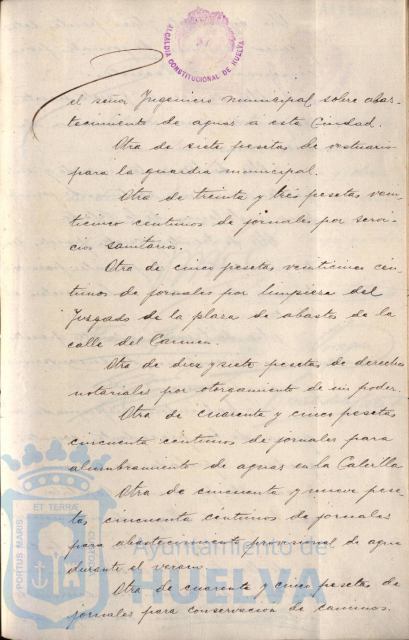 ALCALDIA CONSTITUCIONAL DE HUELVA
el señor Ingeniero municipal, sobre abas-
tecimiento de aguas a esta Ciudad.
Otra de siete pesetas de vestuario
para la guardia municipal.
Otra de treinta y tres pesetas vein-
ticinco centimos de jornales por servi-
cios sanitarios.
Otra de cinco pesetas veinticinco cen-
timos de jornales por limpieza del
Juzgado de la plaza de abastos de la
calle del Carmen.
Otra de diez y siete pesetas de derechos
notariales por otorgamiento de un poder.
Otra de cuarenta y cinco pesetas
cincuenta centimos de jornales para
alumbramiento de aguas en la
Otra de cincuenta y nueve pese-
tas cincuenta centimos de jornales
para abastecimiento provisional de agua
durante el verano.
Otra de cuarenta y cinco pesetas de
jornales para conservacion de caminos.
PORTUS MARIS
ET TERRÆ
Ayuntamiento de
HUELVA